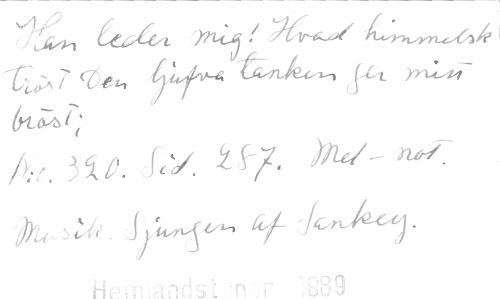 Han leder mig! Hvad himmelsk
tröst Den ljufva tanken ger mitt
bröst;
N:o. 320. Sid. 287. Mel-not.
Musik. Sjungen af Sankey.
Hemlandstoner 1889